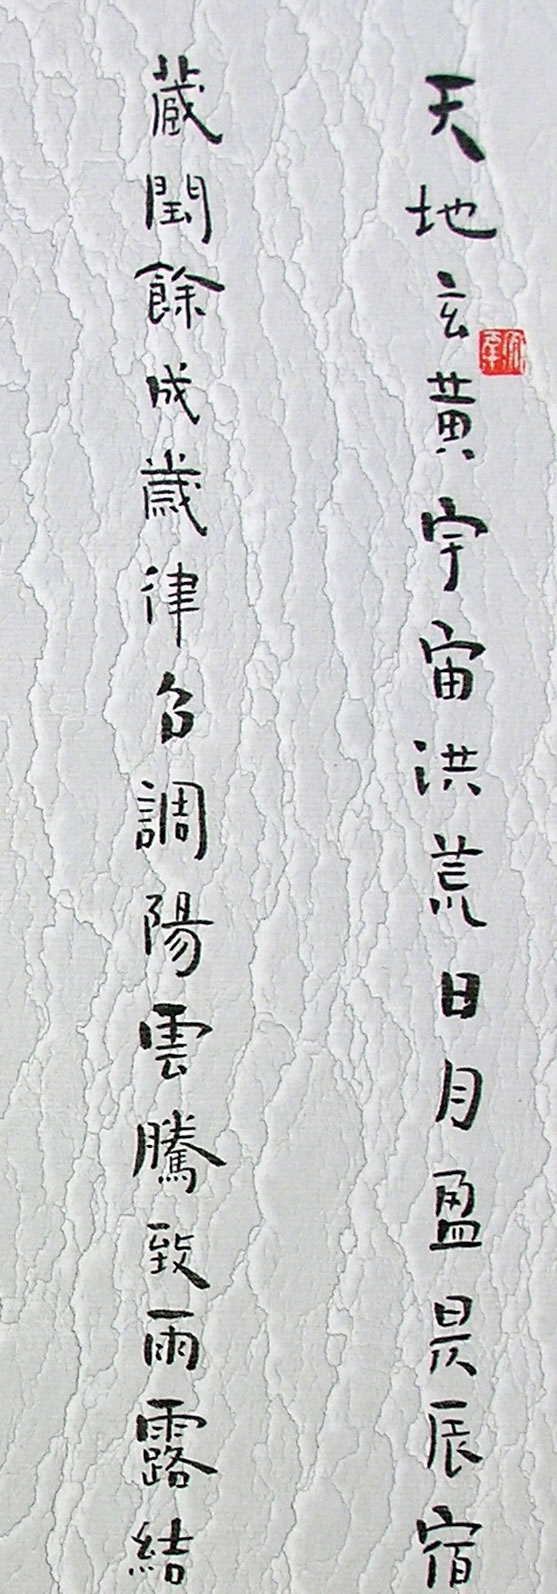 天地玄黃宇宙洪荒日月盈昃辰宿
蔵閏餘成歲律召調陽雲騰致雨露結